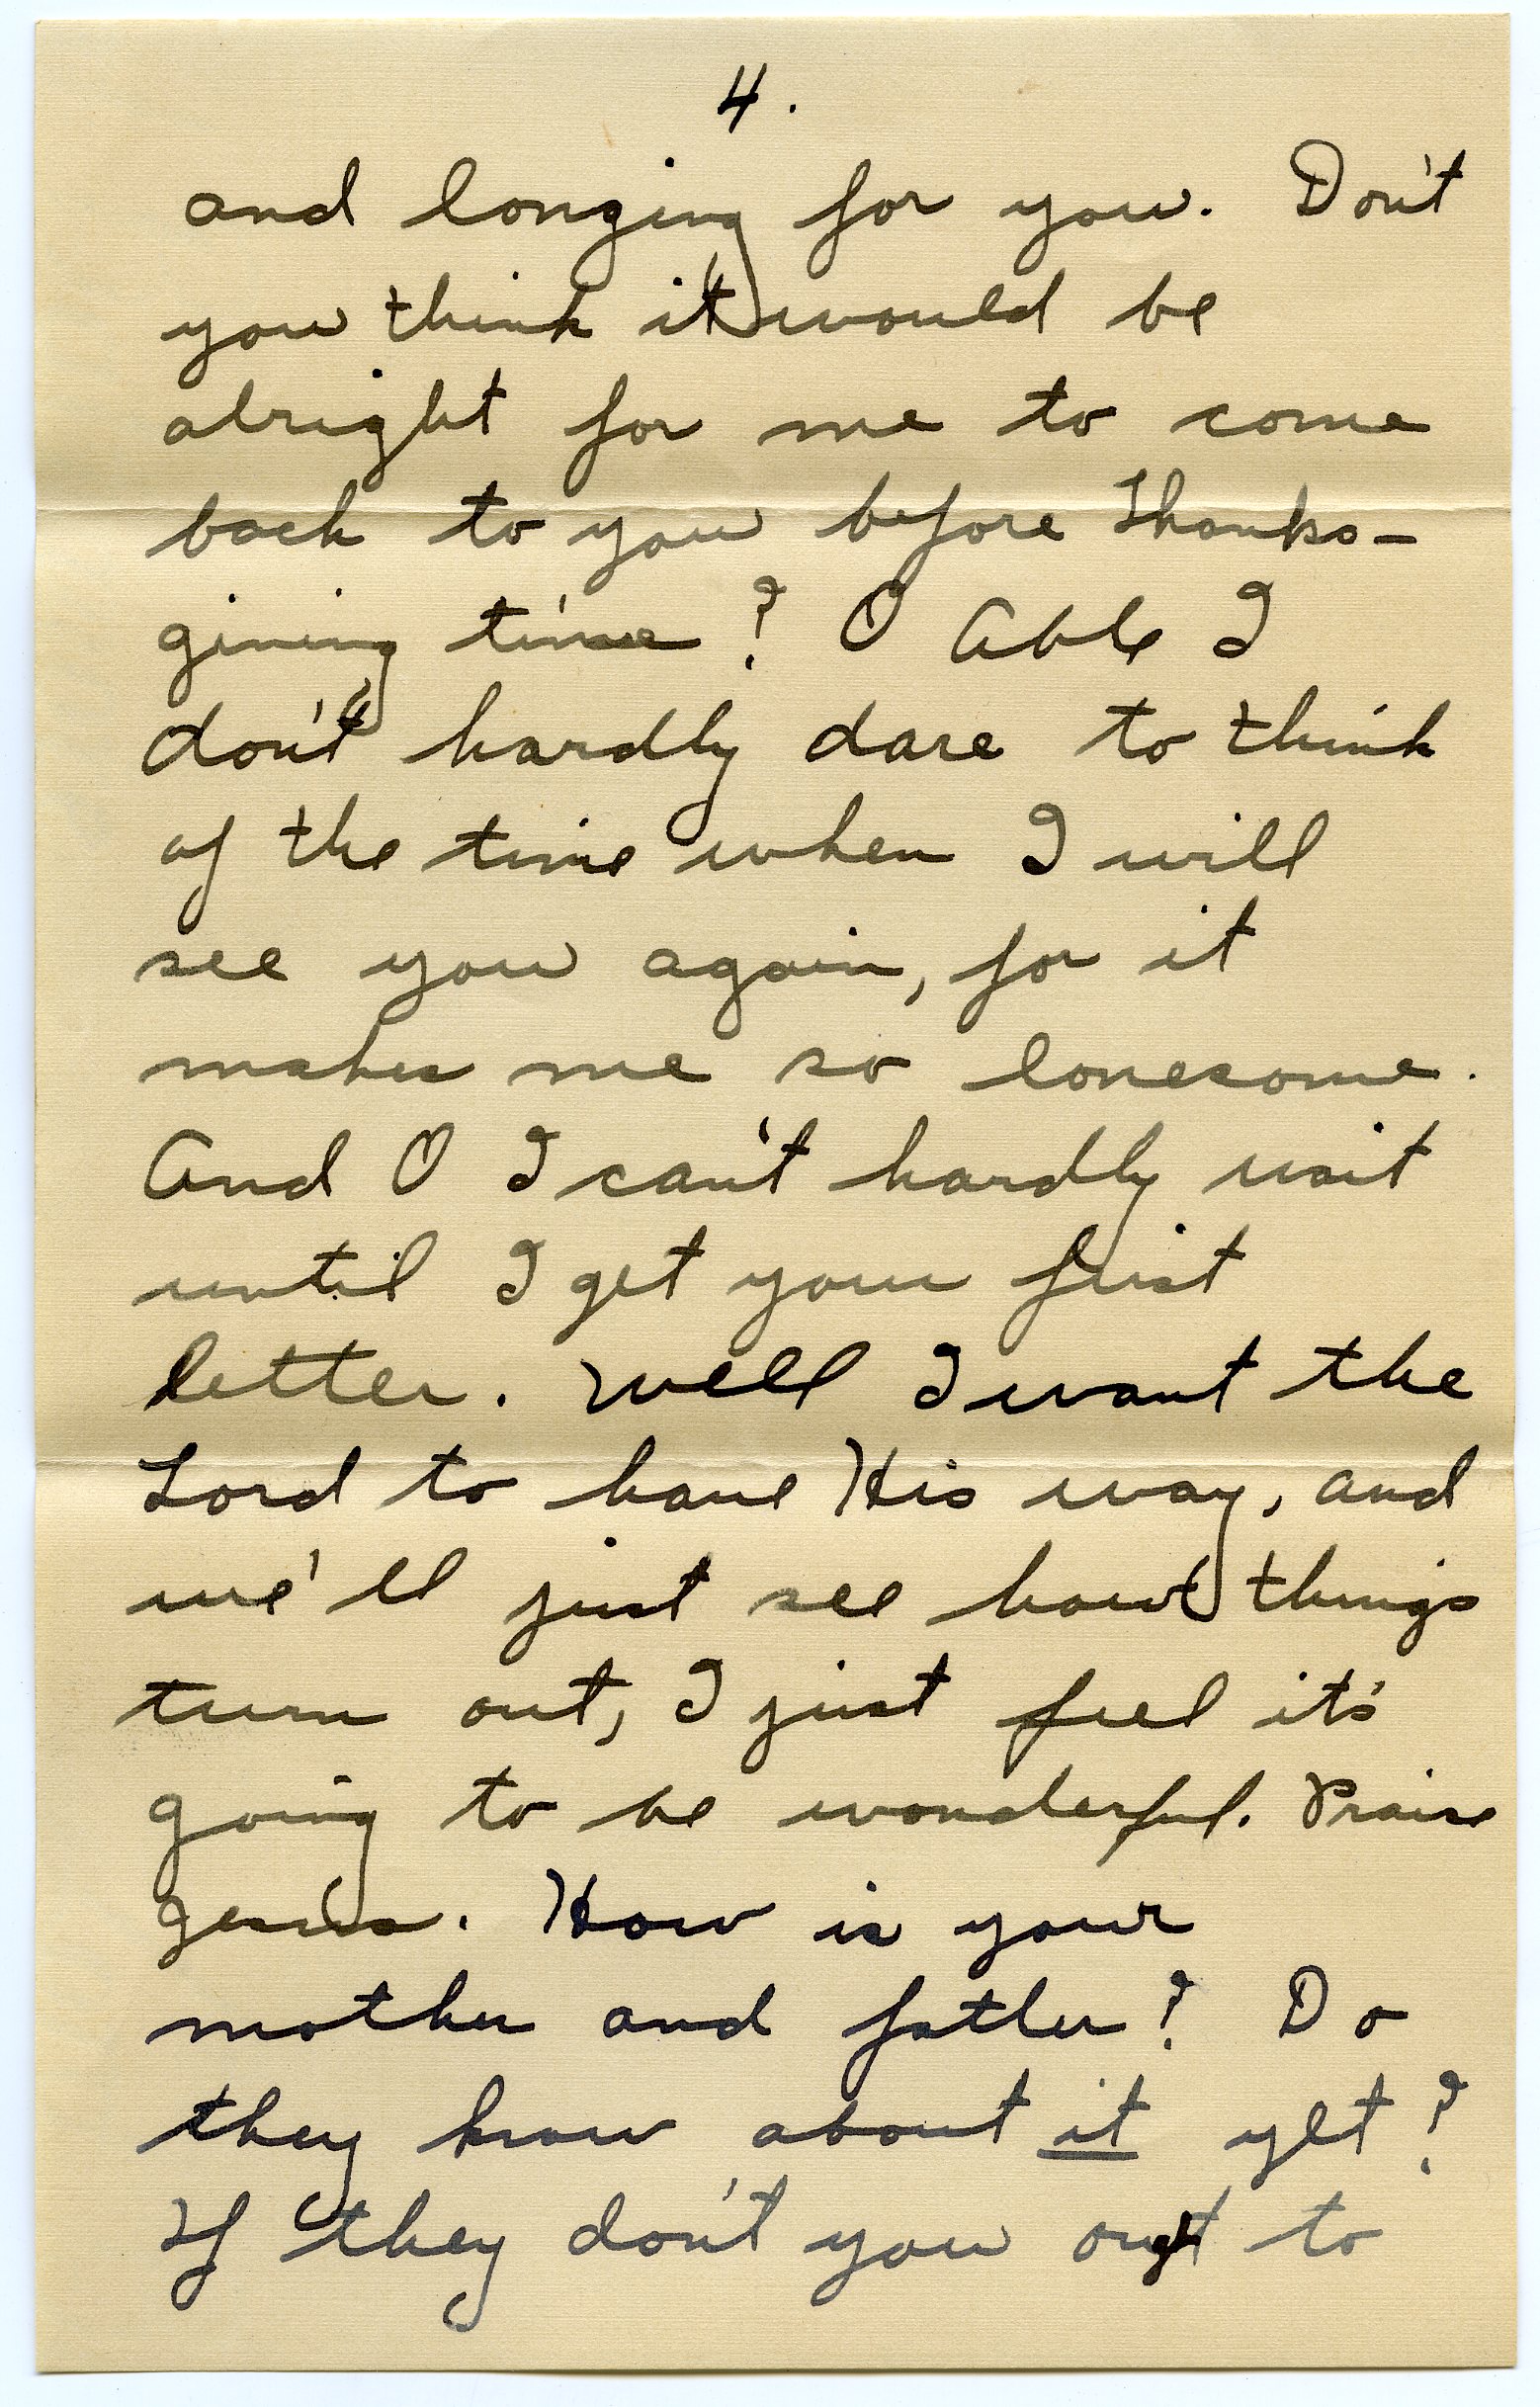 4.
and longing for you. Don't
you think it would be
alright for me to come
back to you before Thanks-
giving time? O Able I
don't hardly dare to think
of the time when I will
see you again, for it
makes me so lonesome.
And O I can't hardly wait
until I get your first
letter. Well I want the
Lord to have His way, and
we'll just see how things
turn out, I just feel it's
going to be wonderful. Praise
Jesus. How is your
mother and father? Do
they know about it yet?
If they don't you ought to